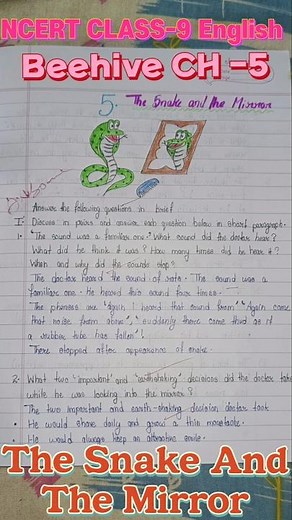 NCERT CLASS-9 English
Beehive CH -5
5. The Snake and the Mirror
Answer the following questions in brief
I. Discuss in pairs and answer each question below in short paragraph.
1. "The sound was a familiar one." What sound did the doctor hear?
What did he think it was? How many times did he hear it?
When and why did the sounds stop?
The doctor heard the sound of rats. The sound was a
familiar one. He heard this sound four times.
The phrases are "again I heard that sound from" "Again came
that noise from above", "suddenly there came thud as if
a rubber tube has fallen".
There stopped after appearance of snake.
2. What two "important" and "earth-shaking" decisions did the doctor take
while he was looking into the mirror?
The two important and earth-shaking decision doctor took
• He would shave daily and grow a thin moustache.
• He would always keep an attractive smile.
The Snake And
The Mirror